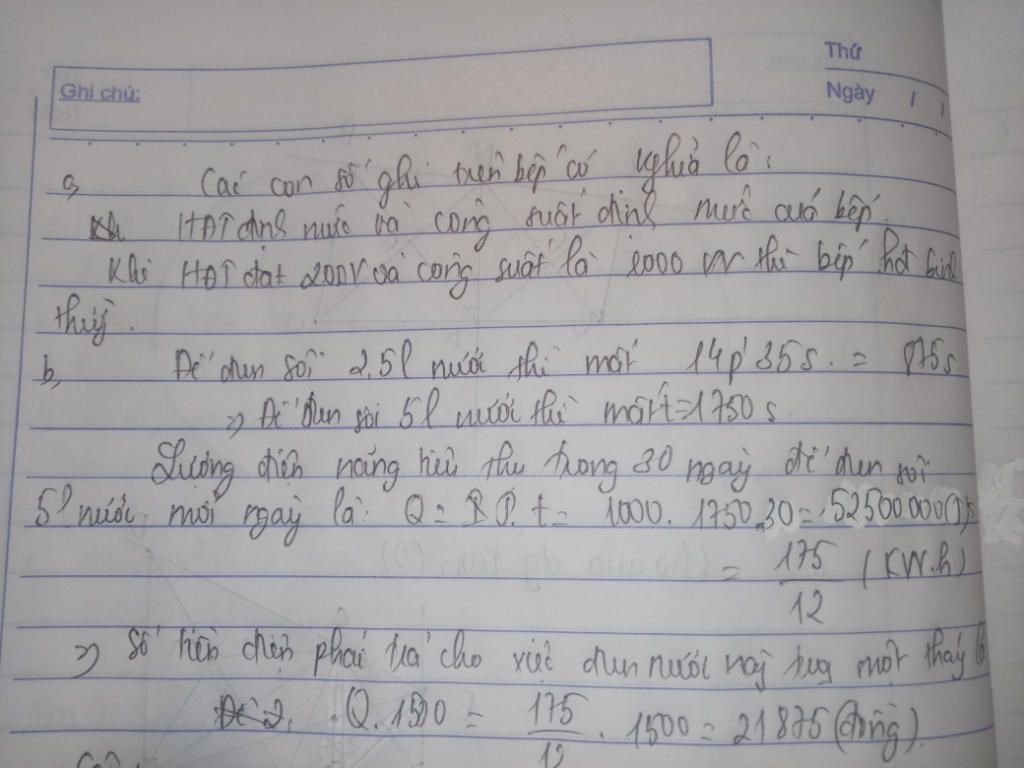 Thứ
Ghi chú:
Ngày / /
a, Các con số ghi trên bếp có nghĩa là:
HĐT định mức và công suất định mức của bếp.
Khi HĐT đạt 200V và công suất là 1000 W thì bếp hđ bình
thườg.
b, Để đun sôi 2,5l nước thì mất 14p' 35s. = 875s
=> Để đun sôi 5l nước thì mất t=1750 s.
Lượng điện năng tiêu thụ trong 30 ngày để đun sôi
5l nước mỗi ngày là: Q = P. t = 1000. 1750.30 = 52500000(J)
= 175/12 (KW.h)
=> Số tiền điện phải trả cho việc đun nước này trog một thág là
Q. 1500 = 175/12 . 1500 = 21875 (đồng).